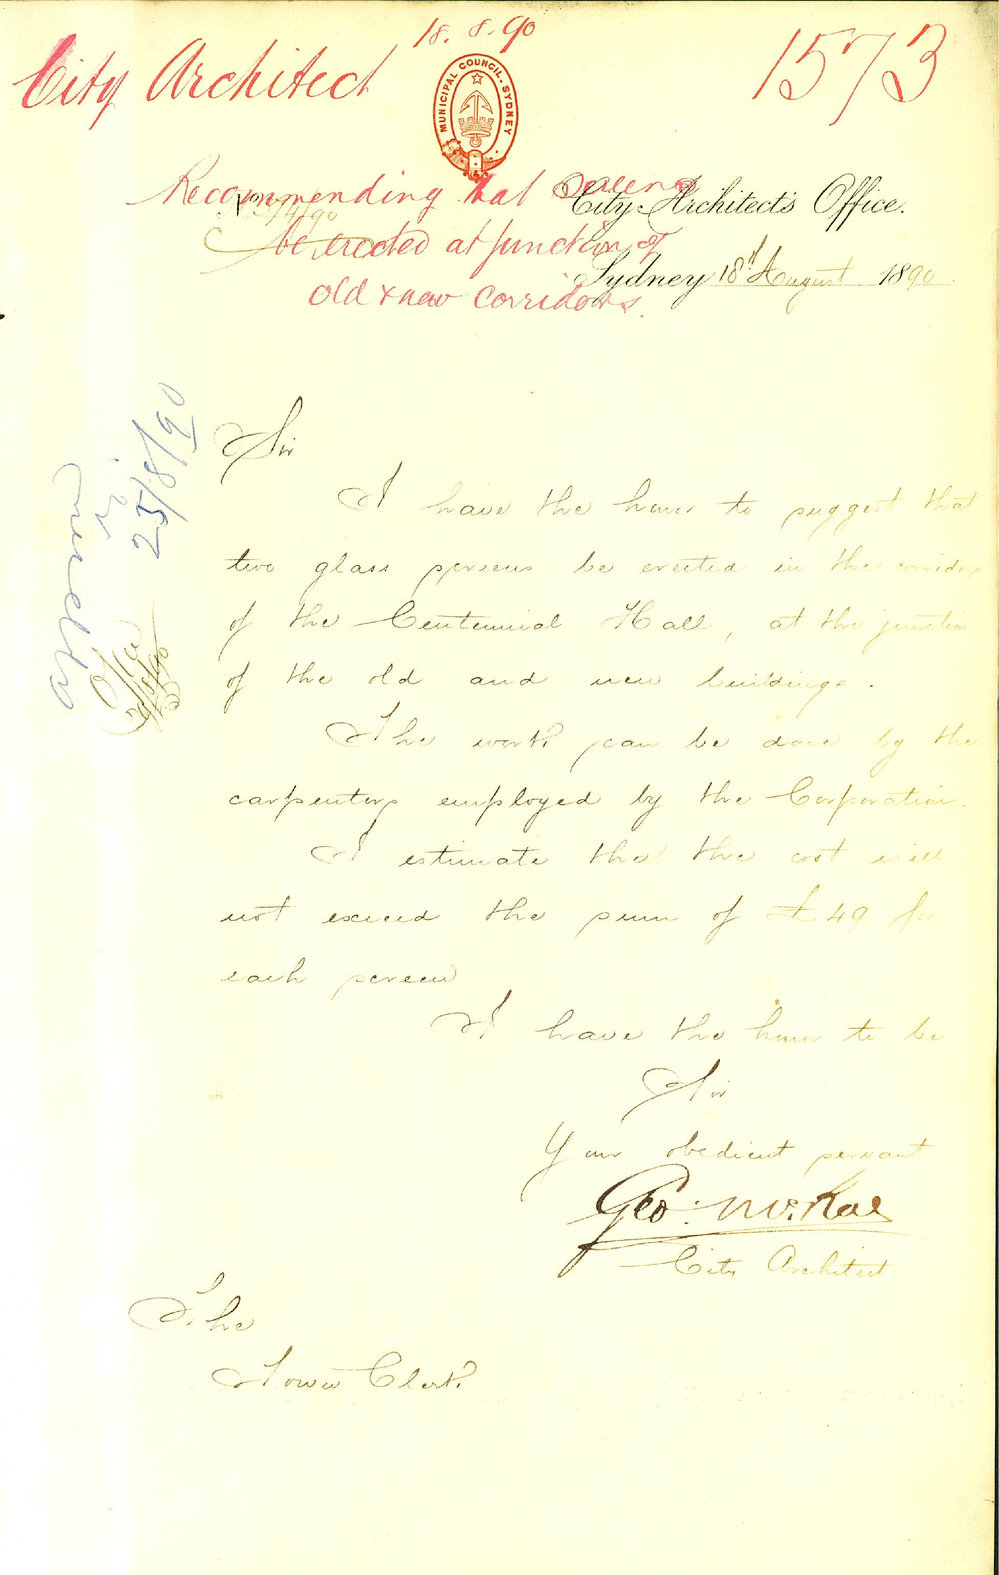 18.8.90
City Architect
1573
MUNICIPAL COUNCIL. SYDNEY
Recommending that screens
be erected at junction of
Old & new corridors.
City Architect's Office.
Sydney 18th August 1890
25/8/90
Sir
I have the honor to suggest that
two glass screens be erected in the corridors
of the Centennial Hall, at the junction
of the old and new buildings.
The work can be done by the
carpenters employed by the Corporation.
I estimate that the cost will
not exceed the sum of £49 for
each screen
I have the honor to be
Sir
Your obedient servant
Geo: McRae
City Architect
The
Town Clerk